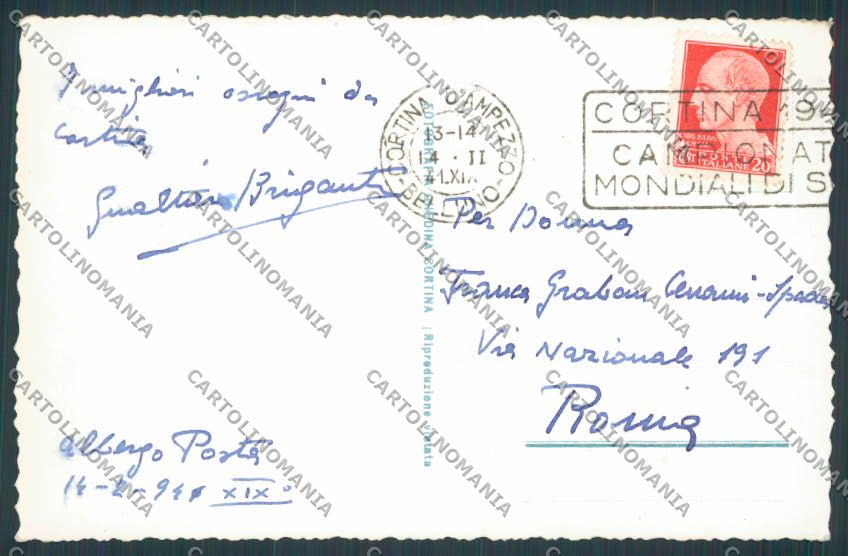 I migliori ossequi da
Cortina
Gualtiero Briganti
Albergo Posta
14-2-941 XIX°
CORTINA D'AMPEZZO
13-14
14 · II
41.XIX
BELLUNO
CORTINA 19
CAMPIONAT
MONDIALI DI S
POSTE
ITALIANE
20
FOTOGRAFIA GHEDINA CORTINA | Riproduzione vietata
Per Donna
Franca Graham Cenami-Spada
Via Nazionale 191
Roma
CARTOLINOMANIA